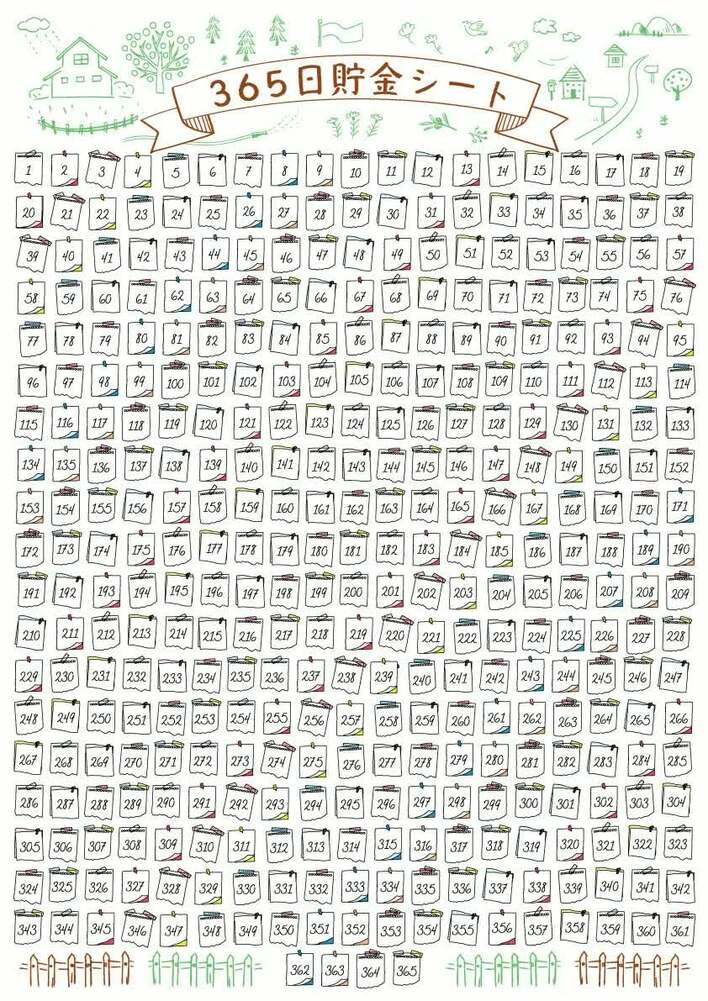 365日貯金シート
1 2 3 4 5 6 7 8 9 10 11 12 13 14 15 16 17 18 19
20 21 22 23 24 25 26 27 28 29 30 31 32 33 34 35 36 37 38
39 40 41 42 43 44 45 46 47 48 49 50 51 52 53 54 55 56 57
58 59 60 61 62 63 64 65 66 67 68 69 70 71 72 73 74 75 76
77 78 79 80 81 82 83 84 85 86 87 88 89 90 91 92 93 94 95
96 97 98 99 100 101 102 103 104 105 106 107 108 109 110 111 112 113 114
115 116 117 118 119 120 121 122 123 124 125 126 127 128 129 130 131 132 133
134 135 136 137 138 139 140 141 142 143 144 145 146 147 148 149 150 151 152
153 154 155 156 157 158 159 160 161 162 163 164 165 166 167 168 169 170 171
172 173 174 175 176 177 178 179 180 181 182 183 184 185 186 187 188 189 190
191 192 193 194 195 196 197 198 199 200 201 202 203 204 205 206 207 208 209
210 211 212 213 214 215 216 217 218 219 220 221 222 223 224 225 226 227 228
229 230 231 232 233 234 235 236 237 238 239 240 241 242 243 244 245 246 247
248 249 250 251 252 253 254 255 256 257 258 259 260 261 262 263 264 265 266
267 268 269 270 271 272 273 274 275 276 277 278 279 280 281 282 283 284 285
286 287 288 289 290 291 292 293 294 295 296 297 298 299 300 301 302 303 304
305 306 307 308 309 310 311 312 313 314 315 316 317 318 319 320 321 322 323
324 325 326 327 328 329 330 331 332 333 334 335 336 337 338 339 340 341 342
343 344 345 346 347 348 349 350 351 352 353 354 355 356 357 358 359 360 361
362 363 364 365